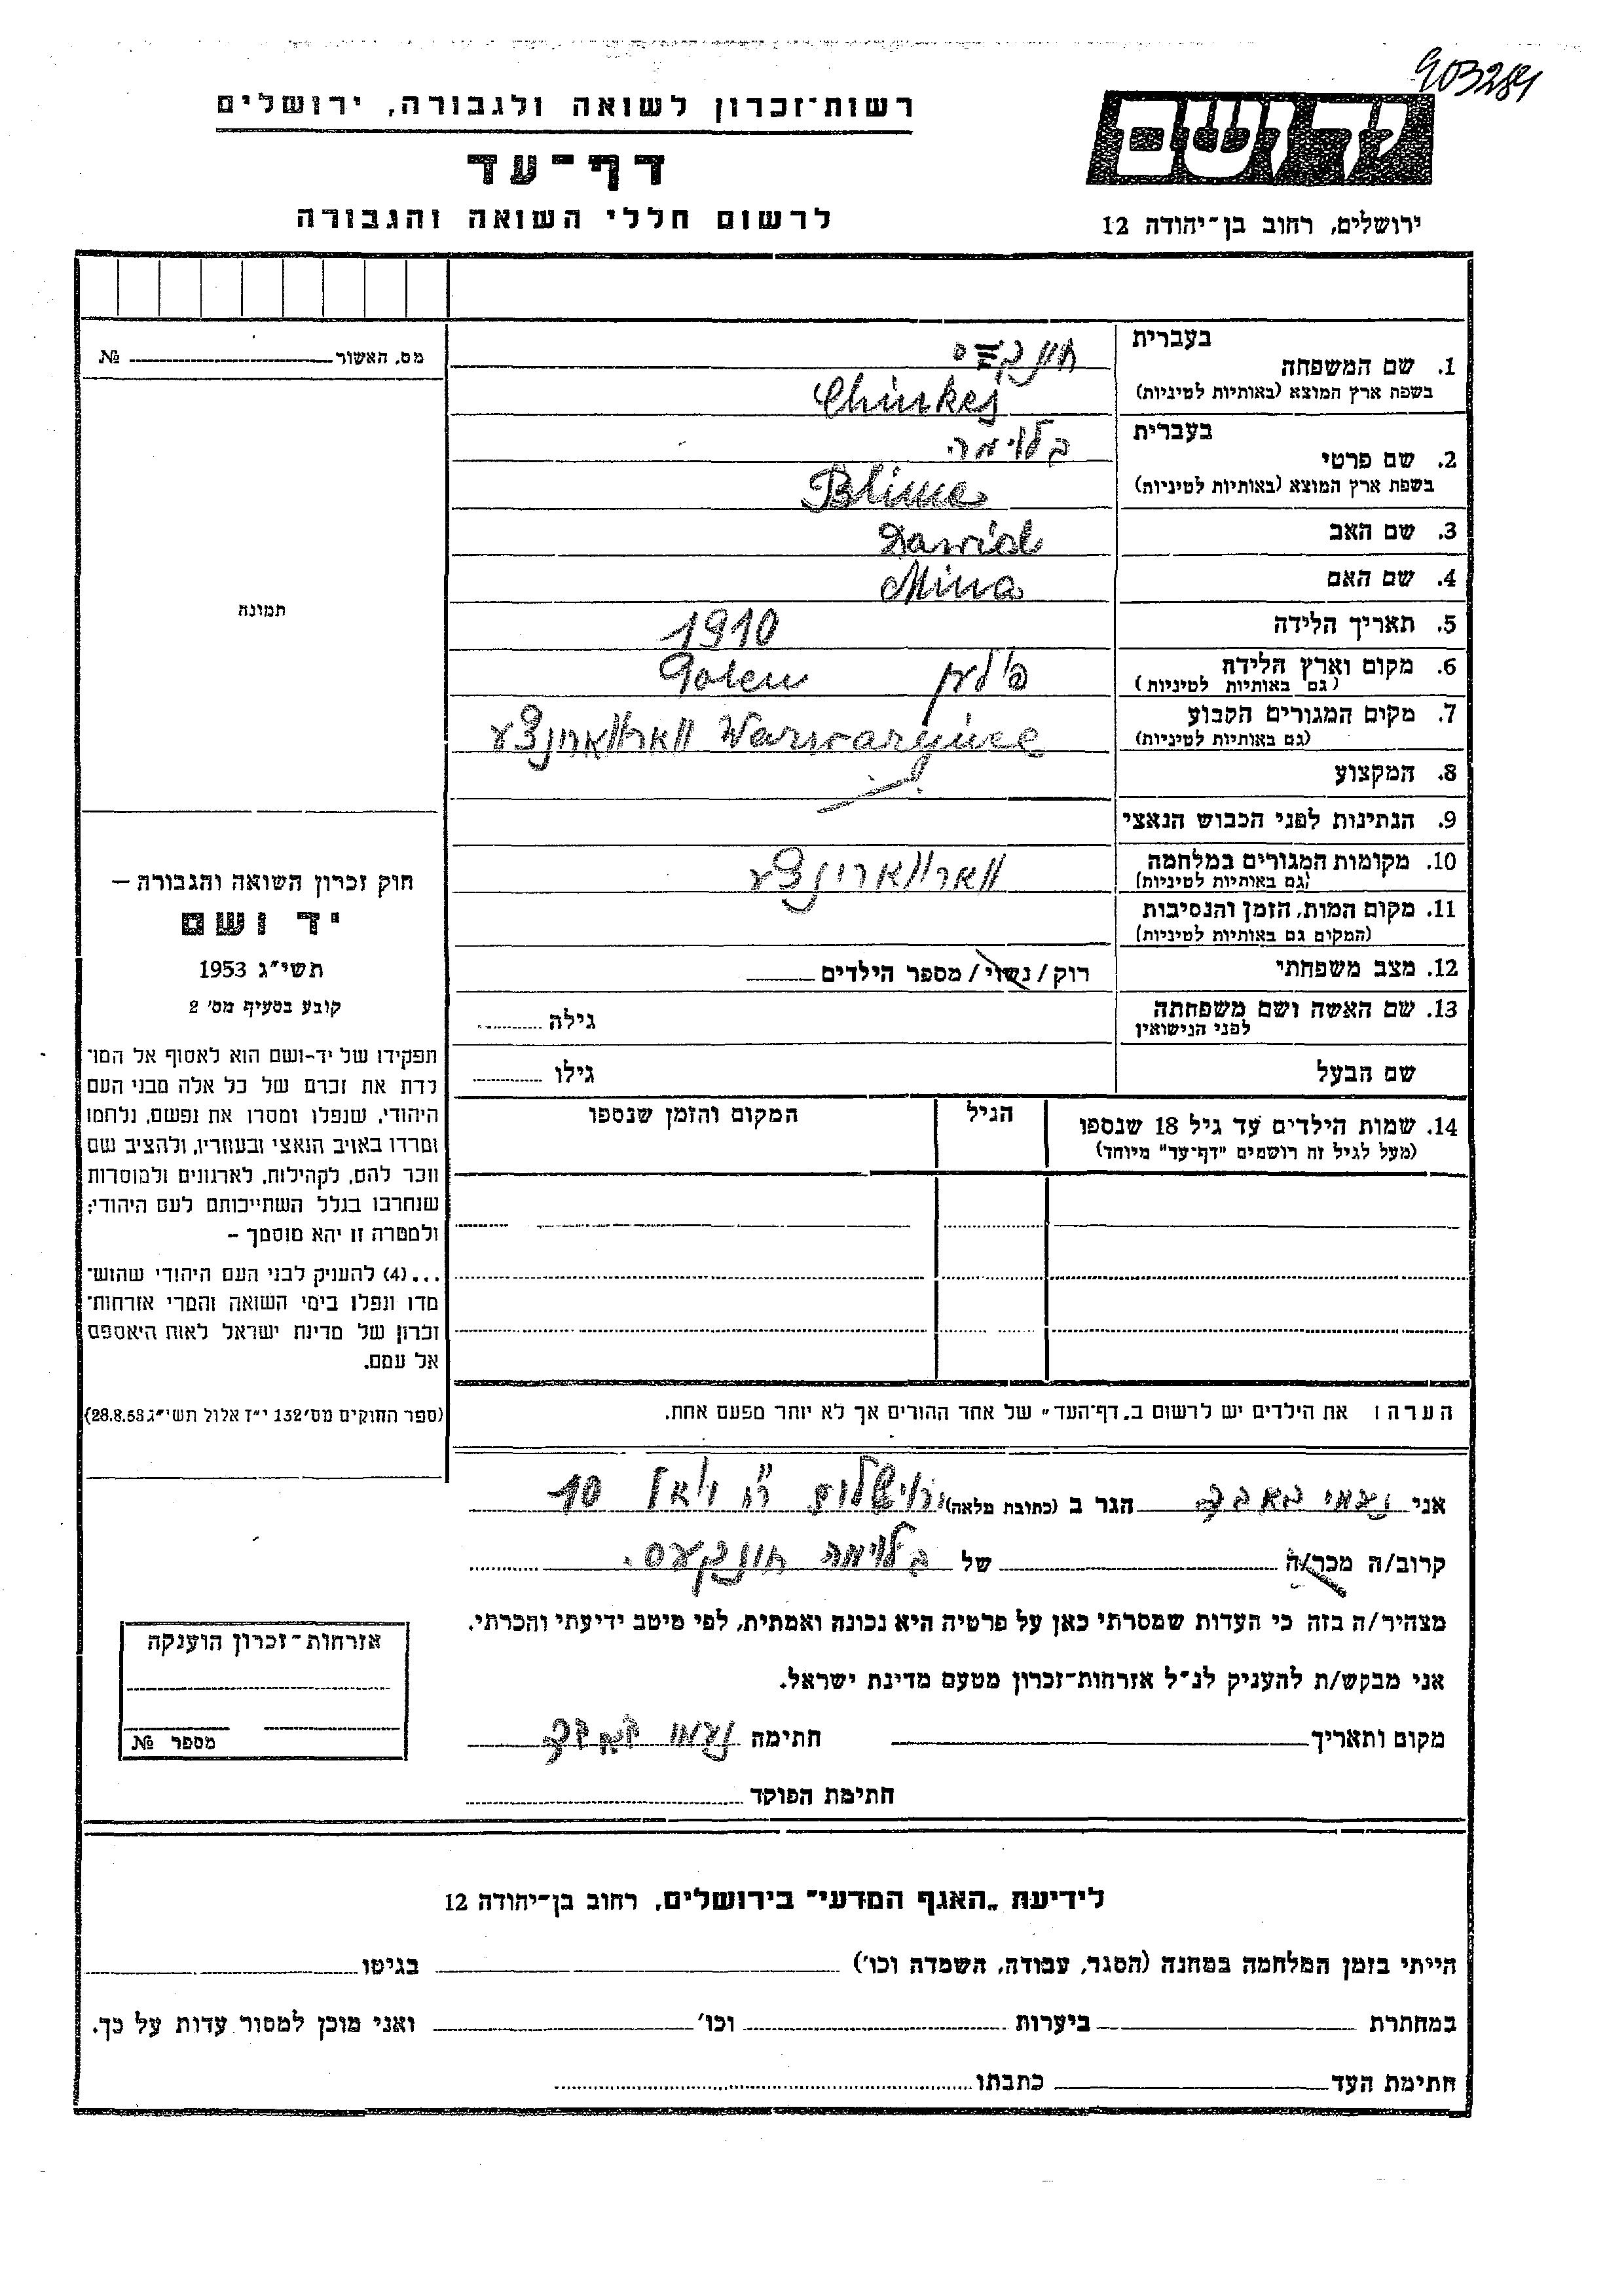 903281
רשות־זכרון לשואה ולגבורה, ירושלים
דף־עד
לרשום חללי השואה והגבורה
יד ושם
ירושלים, רחוב בן־יהודה 12
מס. האשור №
תמונה
חוק זכרון השואה והגבורה –
יד ושם
תשי״ג 1953
קובע בסעיף מס׳ 2
תפקידו של יד-ושם הוא לאסוף אל המו־
לדת את זכרם של כל אלה מבני העם
היהודי, שנפלו ומסרו את נפשם, נלחמו
ומרדו באויב הנאצי ובעוזריו, ולהציב שם
וזכר להם, לקהילות, לארגונים ולמוסדות
שנחרבו בגלל השתייכותם לעם היהודי;
ולמטרה זו יהא מוסמך –
...(4) להעניק לבני העם היהודי שהוש־
מדו ונפלו בימי השואה והמרי אזרחות־
זכרון של מדינת ישראל לאות היאספם
אל עמם.
(ספר החוקים מס׳ 132 י״ז אלול תשי״ג 28.8.53)
1. שם המשפחה בעברית חונקס
בשפת ארץ המוצא (באותיות לטיניות) Chinkes
2. שם פרטי בעברית בלימה
בשפת ארץ המוצא (באותיות לטיניות) Blime
3. שם האב Dawid
4. שם האם Mina
5. תאריך הלידה 1910
6. מקום וארץ הלידה פולין Polen
(גם באותיות לטיניות)
7. מקום המגורים הקבוע Warwarjince ווארווארינצע
(גם באותיות לטיניות)
8. המקצוע
9. הנתינות לפני הכבוש הנאצי
10. מקומות המגורים במלחמה ווארווארינצע
(גם באותיות לטיניות)
11. מקום המות, הזמן והנסיבות
(המקום גם באותיות לטיניות)
12. מצב משפחתי רוק/נשוי/מספר הילדים
13. שם האשה ושם משפחתה גילה
לפני הנישואין
שם הבעל גילו
14. שמות הילדים עד גיל 18 שנספו הגיל המקום והזמן שנספו
(מעל לגיל זה רושמים "דף־עד" מיוחד)
הערה: את הילדים יש לרשום ב„דף־העד" של אחד ההורים אך לא יותר מפעם אחת.
אני נעמי הגר ב (כתובת מלאה) ירושלים רח׳ 10
קרוב/ה מכר/ה של בלימה חונקעס.
מצהיר/ה בזה כי העדות שמסרתי כאן על פרטיה היא נכונה ואמתית, לפי מיטב ידיעתי והכרתי.
אני מבקש/ת להעניק לנ״ל אזרחות־זכרון מטעם מדינת ישראל.
מקום ותאריך חתימה נעמי
חתימת הפוקד
אזרחות־זכרון הוענקה
מספר №
לידיעת „האגף המדעי" בירושלים, רחוב בן־יהודה 12
הייתי בזמן המלחמה במחנה (הסגר, עבודה, השמדה וכו׳) בגיטו
במחתרת ביערות וכו׳ ואני מוכן למסור עדות על כך.
חתימת העד כתבתו